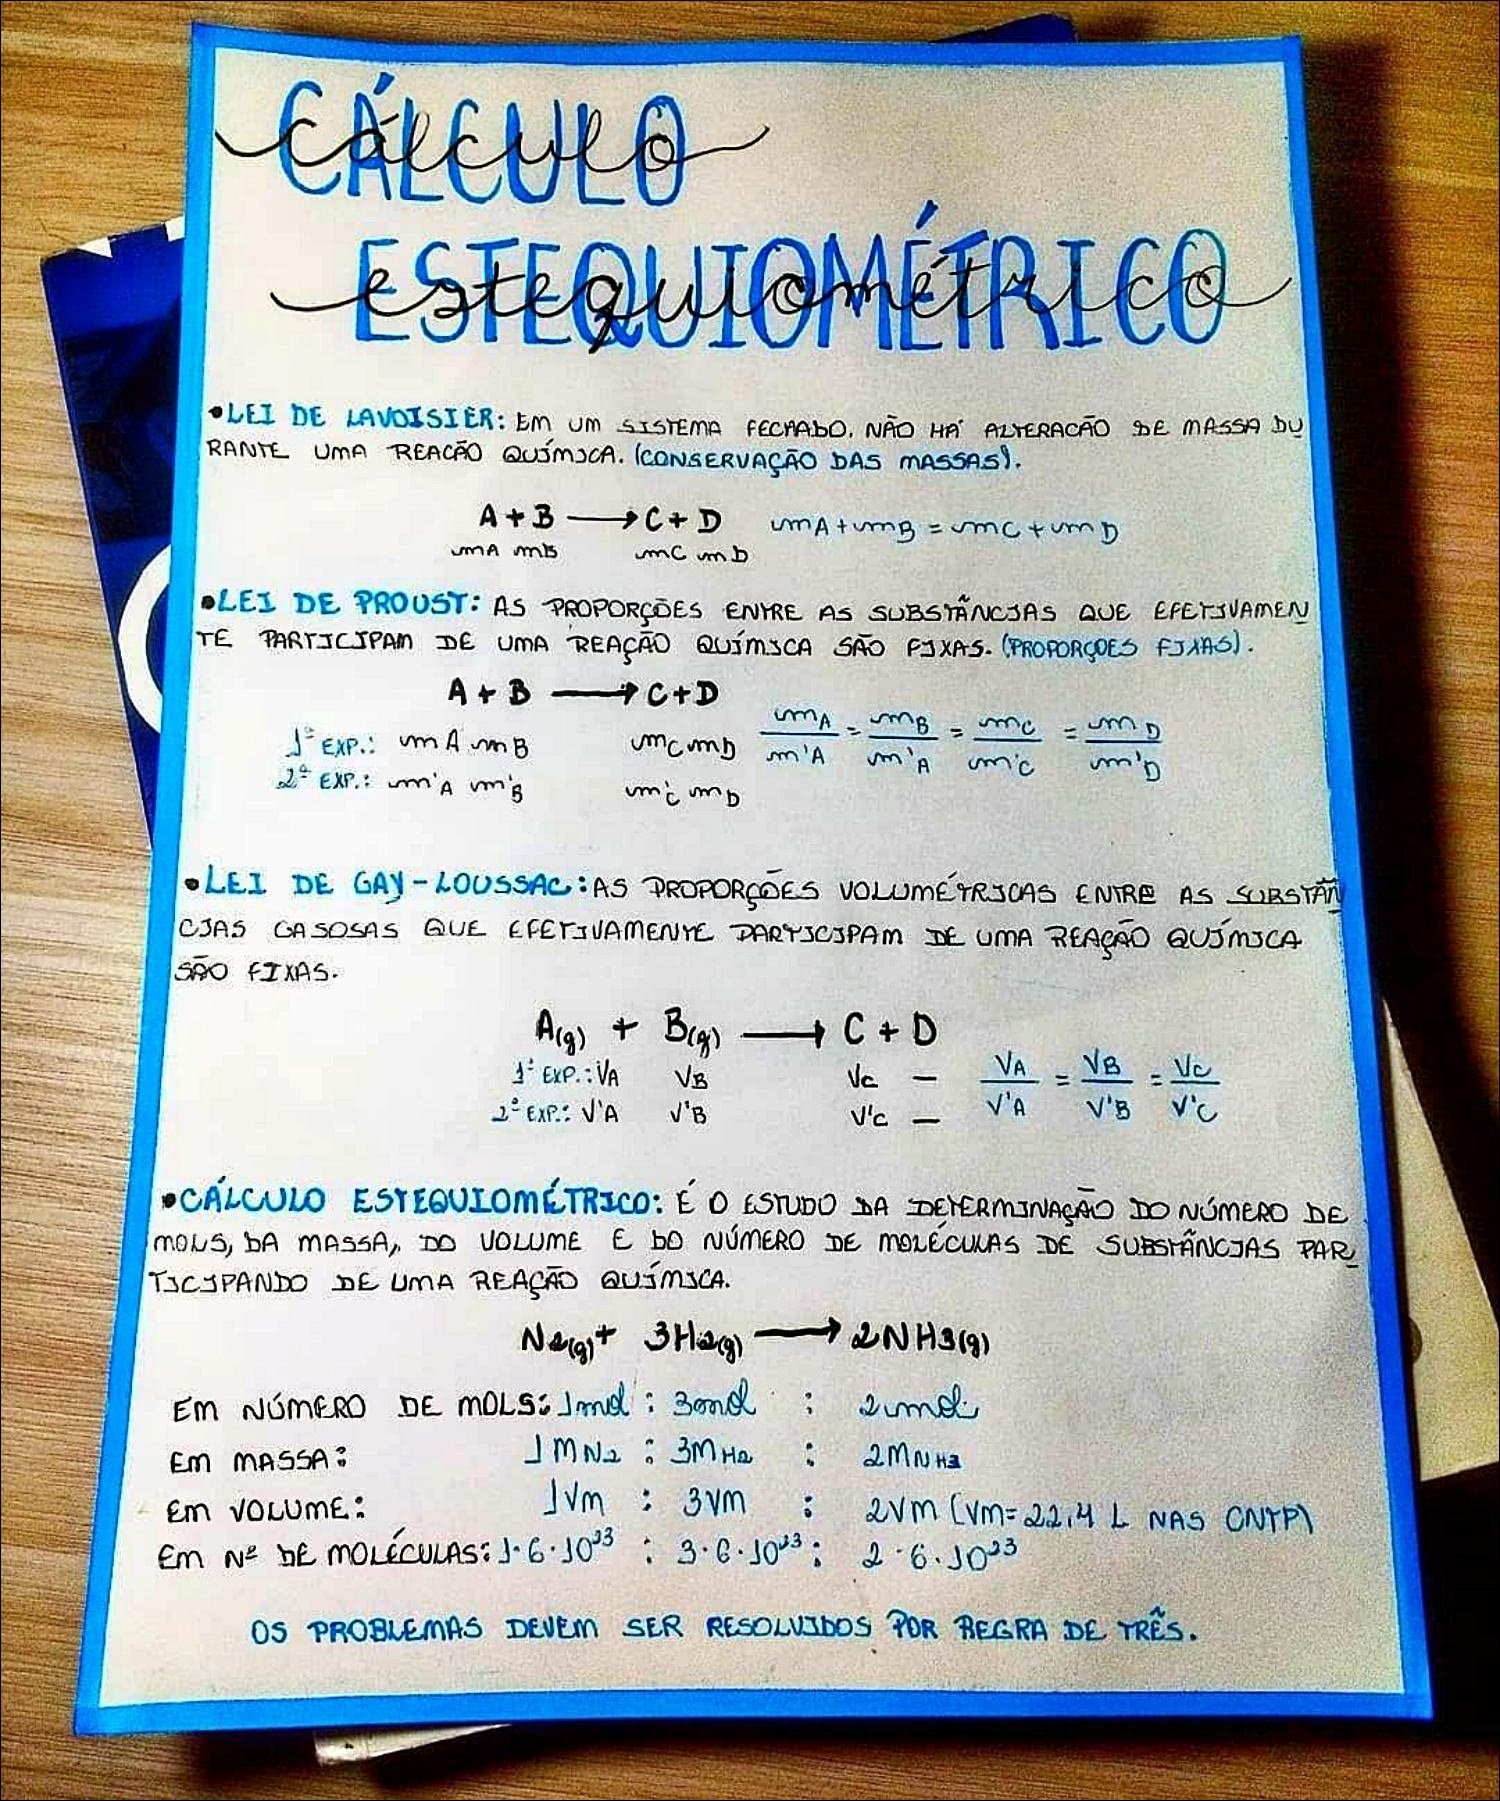 CÁLCULO
cálculo
ESTEQUIOMÉTRICO
estequiométrico
•LEI DE LAVOISIER: EM UM SISTEMA FECHADO. NÃO HÁ ALTERACÃO DE MASSA DU
RANTE UMA REACÃO QUÍMICA. (CONSERVAÇÃO DAS MASSAS).
A + B → C + D mA + mB = mC + mD
mA mB mC mD
•LEI DE PROUST: AS PROPORÇÕES ENTRE AS SUBSTÂNCIAS QUE EFETIVAMEN
TE PARTICIPAM DE UMA REAÇÃO QUÍMICA SÃO FIXAS. (PROPORÇOES FIXAS).
A + B → C + D
mA/m'A = mB/m'A = mC/m'C = mD/m'D
1ª EXP.: mA mB mC mD
2ª EXP.: m'A m'B m'C mD
•LEI DE GAY-LOUSSAC: AS PROPORÇÕES VOLUMÉTRICAS ENTRE AS SUBSTÂN
CIAS GASOSAS QUE EFETIVAMENTE PARTICIPAM DE UMA REAÇÃO QUÍMICA
SÃO FIXAS.
A(g) + B(g) → C + D
1ª EXP.: VA VB VC — VA/V'A = VB/V'B = VC/V'C
2ª EXP.: V'A V'B V'C —
•CÁLCULO ESTEQUIOMÉTRICO: É O ESTUDO DA DETERMINAÇÃO DO NÚMERO DE
MOLS, DA MASSA, DO VOLUME E DO NÚMERO DE MOLÉCULAS DE SUBSTÂNCIAS PAR
TICIPANDO DE UMA REAÇÃO QUÍMICA.
N2(g) + 3H2(g) → 2NH3(g)
EM NÚMERO DE MOLS: 1mol : 3mol : 2mol
EM MASSA: 1MN2 : 3MH2 : 2MNH3
EM VOLUME: 1Vm : 3Vm : 2Vm (Vm=22,4 L NAS CNTP)
EM Nº DE MOLÉCULAS: 1·6·10²³ : 3·6·10²³ : 2·6·10²³
OS PROBLEMAS DEVEM SER RESOLVIDOS POR REGRA DE TRÊS.